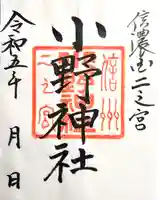 信濃国二之宮
小野神社
令和五年 月 日
信州
二之宮